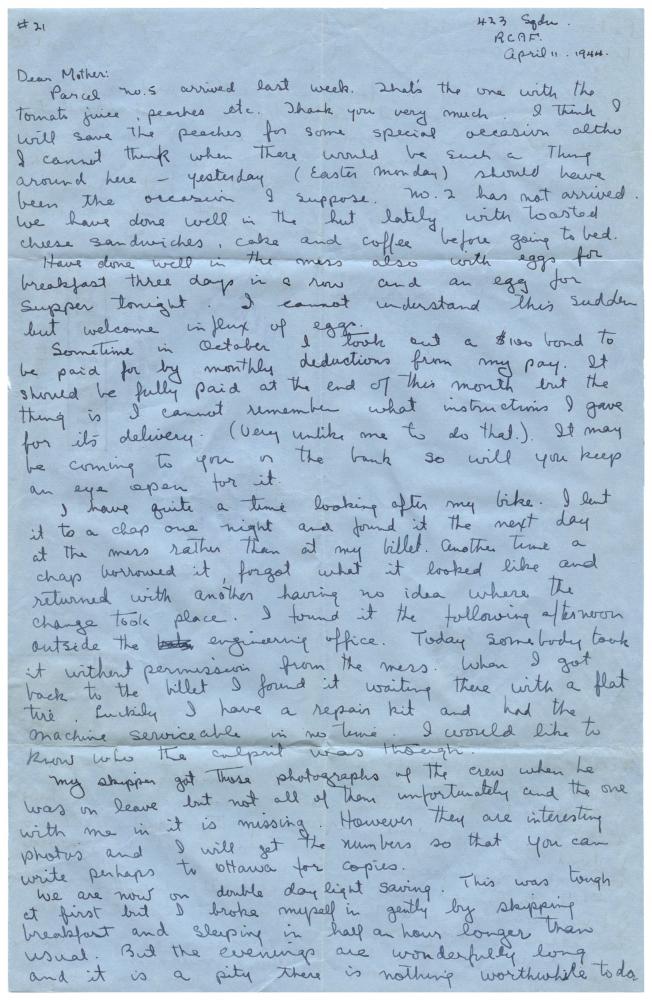 #21
423 Sqdn.
RCAF.
April 11. 1944.
Dear Mother:
Parcel no. 5 arrived last week. That's the one with the
tomato juice, peaches etc. Thank you very much. I think I
will save the peaches for some special occasion altho
I cannot think when there would be such a thing
around here - yesterday (Easter Monday) should have
been the occasion I suppose. No. 2 has not arrived.
We have done well in the hut lately with toasted
cheese sandwiches, cake and coffee before going to bed.
Have done well in the mess also with eggs for
breakfast three days in a row and an egg for
supper tonight. I cannot understand this sudden
but welcome influx of eggs.
Sometime in October I took out a $100 bond to
be paid for by monthly deductions from my pay. It
should be fully paid at the end of this month but the
thing is I cannot remember what instructions I gave
for its delivery. (Very unlike me to do that.). It may
be coming to you or the bank so will you keep
an eye open for it.
I have quite a time looking after my bike. I lent
it to a chap one night and found it the next day
at the mess rather than at my billet. Another time a
chap borrowed it, forgot what it looked like and
returned with another having no idea where the
change took place. I found it the following afternoon
outside the engineering office. Today somebody took
it without permission from the mess. When I got
back to the billet I found it waiting there with a flat
tire. Luckily I have a repair kit and had the
machine serviceable in no time. I would like to
know who the culprit was though.
My skipper got those photographs of the crew when he
was on leave but not all of them unfortunately and the one
with me in it is missing. However they are interesting
photos and I will get the numbers so that you can
write perhaps to Ottawa for copies.
We are now on double daylight saving. This was tough
at first but I broke myself in gently by skipping
breakfast and sleeping in half an hour longer than
usual. But the evenings are wonderfully long
and it is a pity there is nothing worthwhile to do